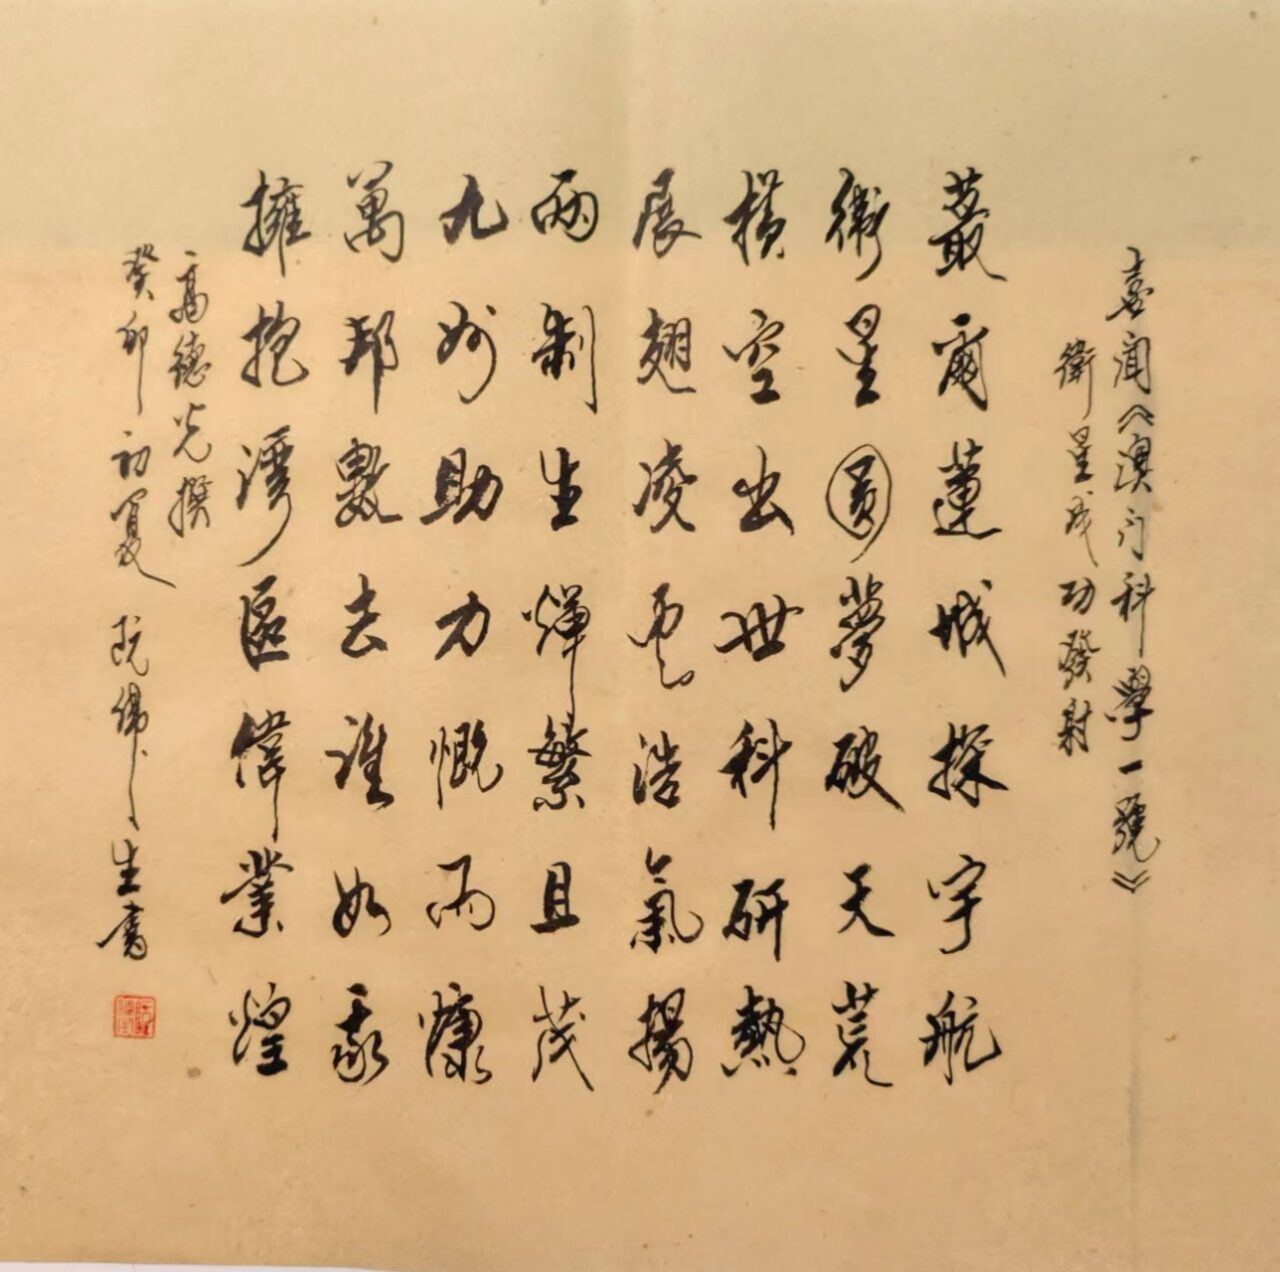 喜聞《澳门科學一號》
衛星成功發射
蕞爾蓮城探宇航
衛星圓夢破天荒
橫空出世科研熱
展翅凌雲浩氣揚
兩制生輝繁且茂
九州助力慨而慷
萬邦數去誰如我
擁抱灣區偉業煌
高德光撰
癸卯初夏 阮佛生書